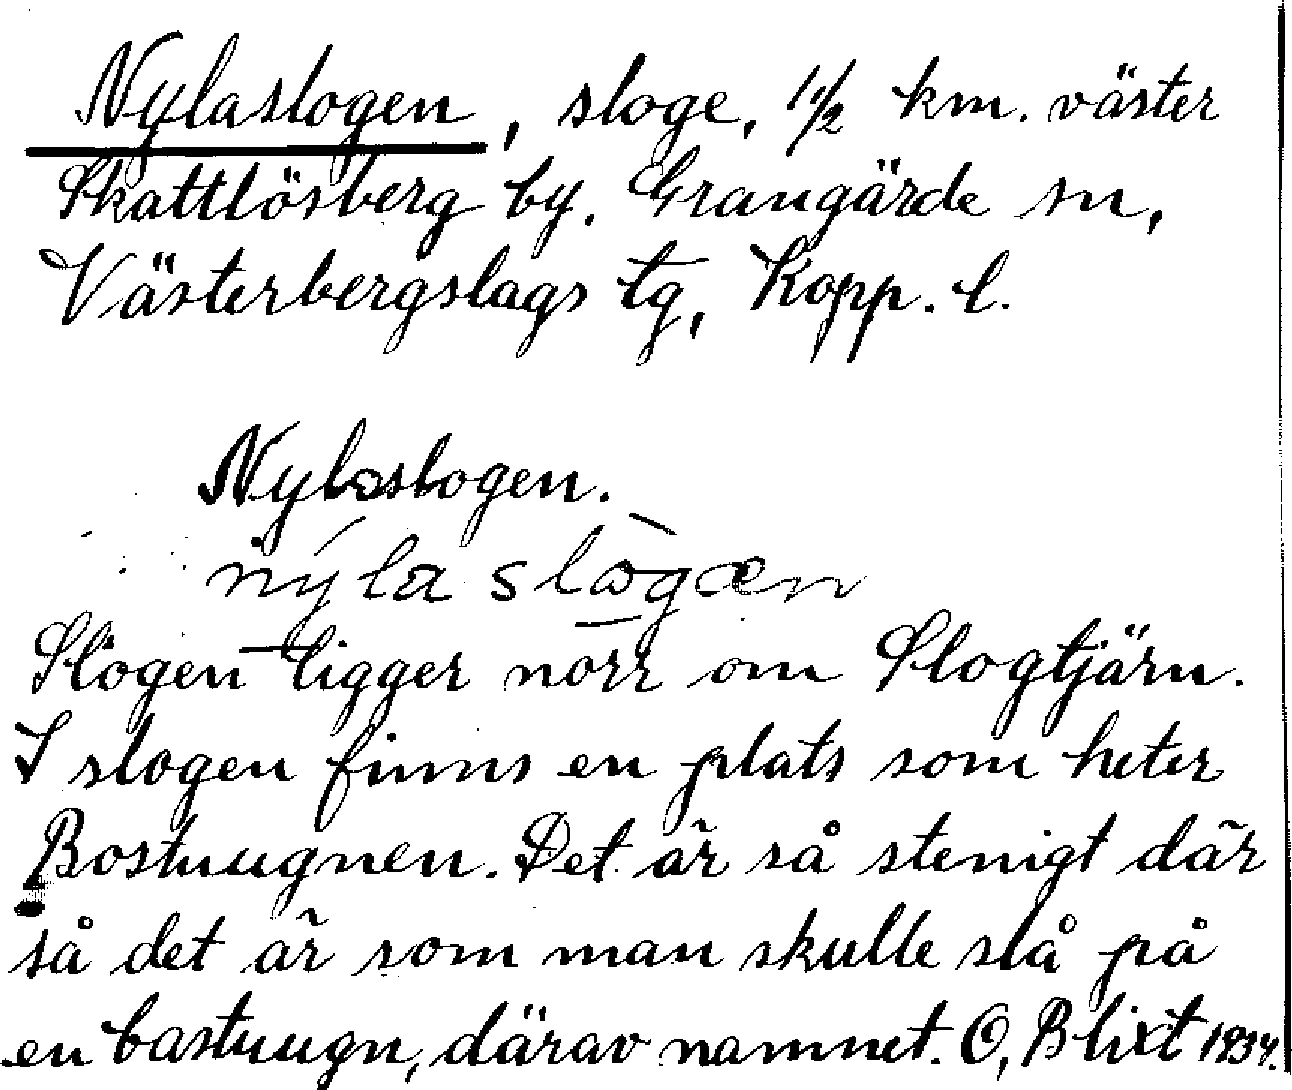 Nylaslogen, sloge, 1 1/2 km. väster
Skattlösberg by. Grangärde sn,
Västerbergslags tg, Kopp. l.
Nylaslogen.
nýla slògæn
Slogen ligger norr om Slogtjärn.
I slogen finns en plats som heter
Bostuugnen. Det är så stenigt där
så det är som man skulle slå på
en bastuugn, därav namnet. O, Blixt 1934.